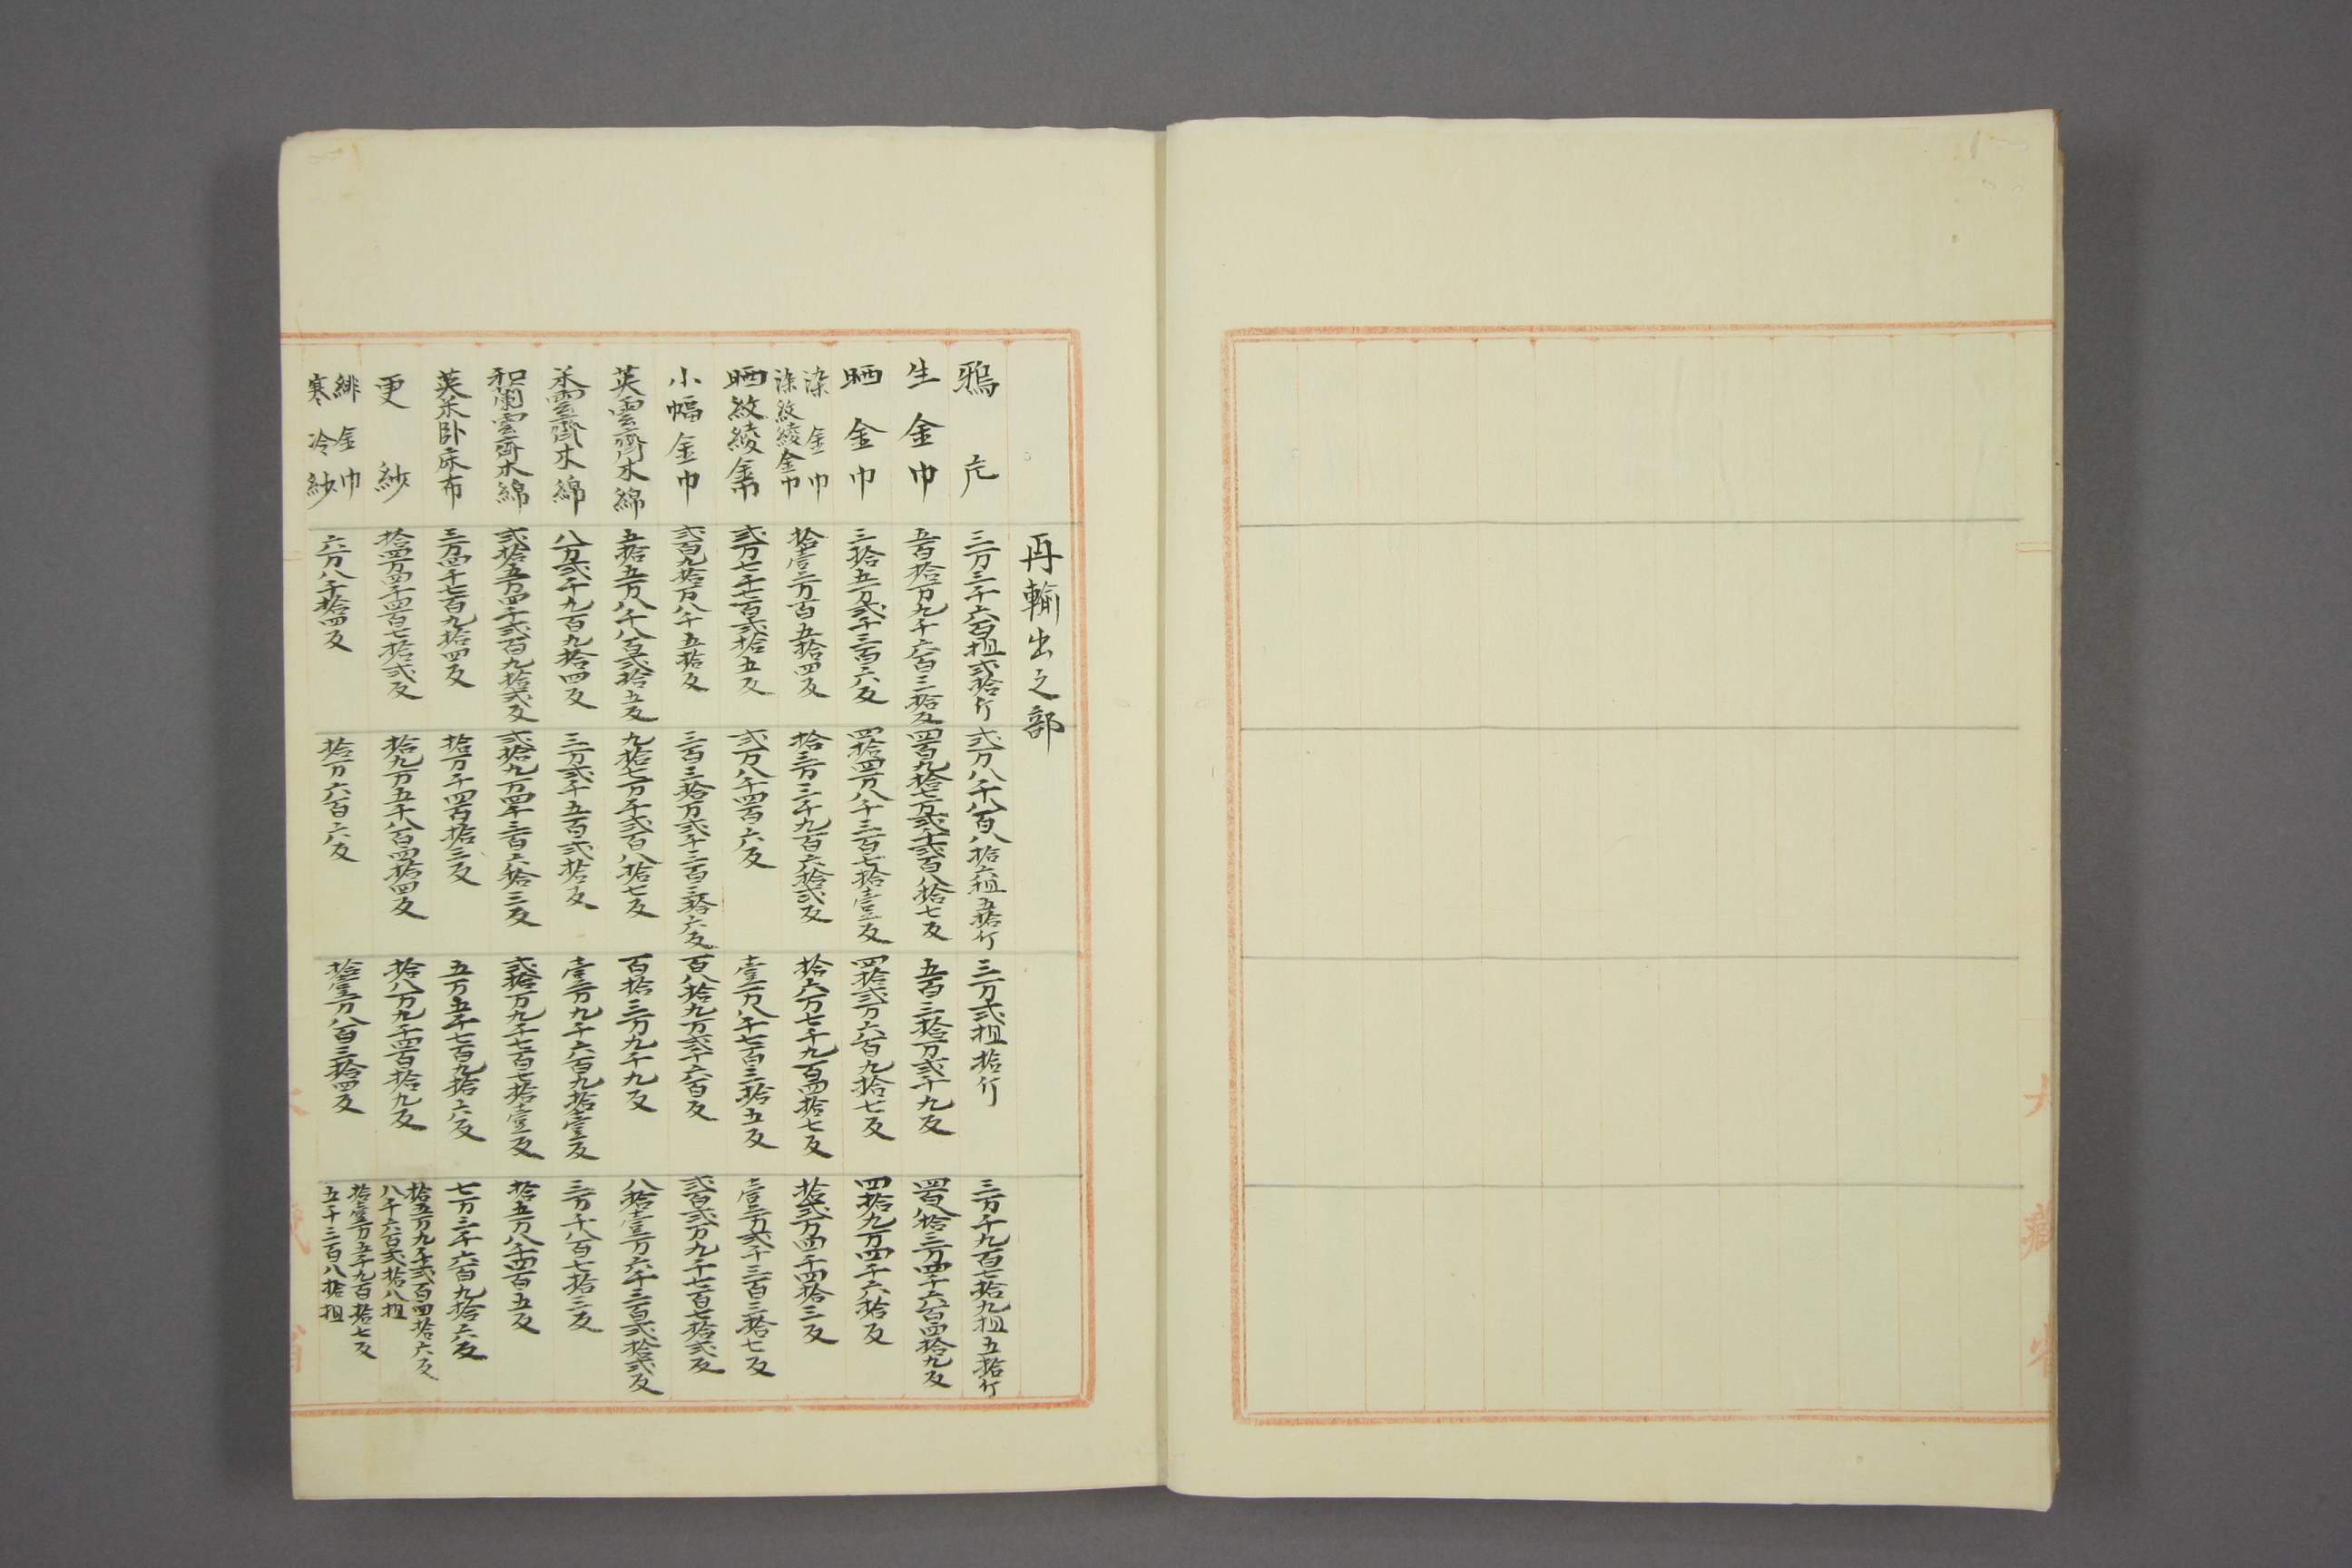 再輸出之部
鴉片
三万三千六百担弐拾斤
弐万八千八百八拾六担五拾斤
三万弐担拾斤
三万千九百七拾九担五拾斤
生金巾
五百拾万九千六百三拾反
四百九拾七万弐千弐百八拾七反
五百三拾万弐千九反
四百八拾三万四千六百四拾九反
晒金巾
三拾五万弐千三百六反
四拾四万八千三百七拾壹反
四拾弐万六百九拾七反
四拾九万四千六拾反
染金巾
染紋綾金巾
拾壹万百五拾四反
拾三万三千九百六拾弐反
拾六万七千九百四拾七反
拾弐万四千四拾三反
晒紋綾金巾
弐万七千七百弐拾五反
弐万八千四百六反
壹万八千七百三拾五反
壹万弐千三百三拾七反
小幅金巾
弐百九拾万八千五拾反
三百三拾万弐千三百三拾六反
百八拾九万弐千六百反
弐百弐万九千七百七拾弐反
英雲齊木綿
五拾五万八千八百弐拾五反
九拾七万千弐百八拾七反
百拾三万九千九反
八拾壹万六千三百弐拾弐反
米雲齊木綿
八万弐千九百九拾四反
三万弐千五百弐拾反
壹万九千六百九拾壹反
三万千八百七拾三反
和蘭雲齊木綿
弐拾五万四千弐百九拾弐反
弐拾九万四千三百六拾三反
弐拾万九千七百七拾壹反
拾五万八千四百五反
英米卧床布
三万四千七百九拾四反
拾万千四百拾三反
五万五千七百九拾六反
七万三千六百九拾六反
更紗
拾四万四千四百七拾弐反
拾九万五千八百四拾四反
拾八万九千四百拾九反
拾五万九千弐百四拾六反
八千六百弐拾八担
緋金巾
寒冷紗
六万八千拾四反
拾万六百六反
拾壹万八百三拾四反
拾壹万五千九百拾七反
五千三百八拾担
大藏省